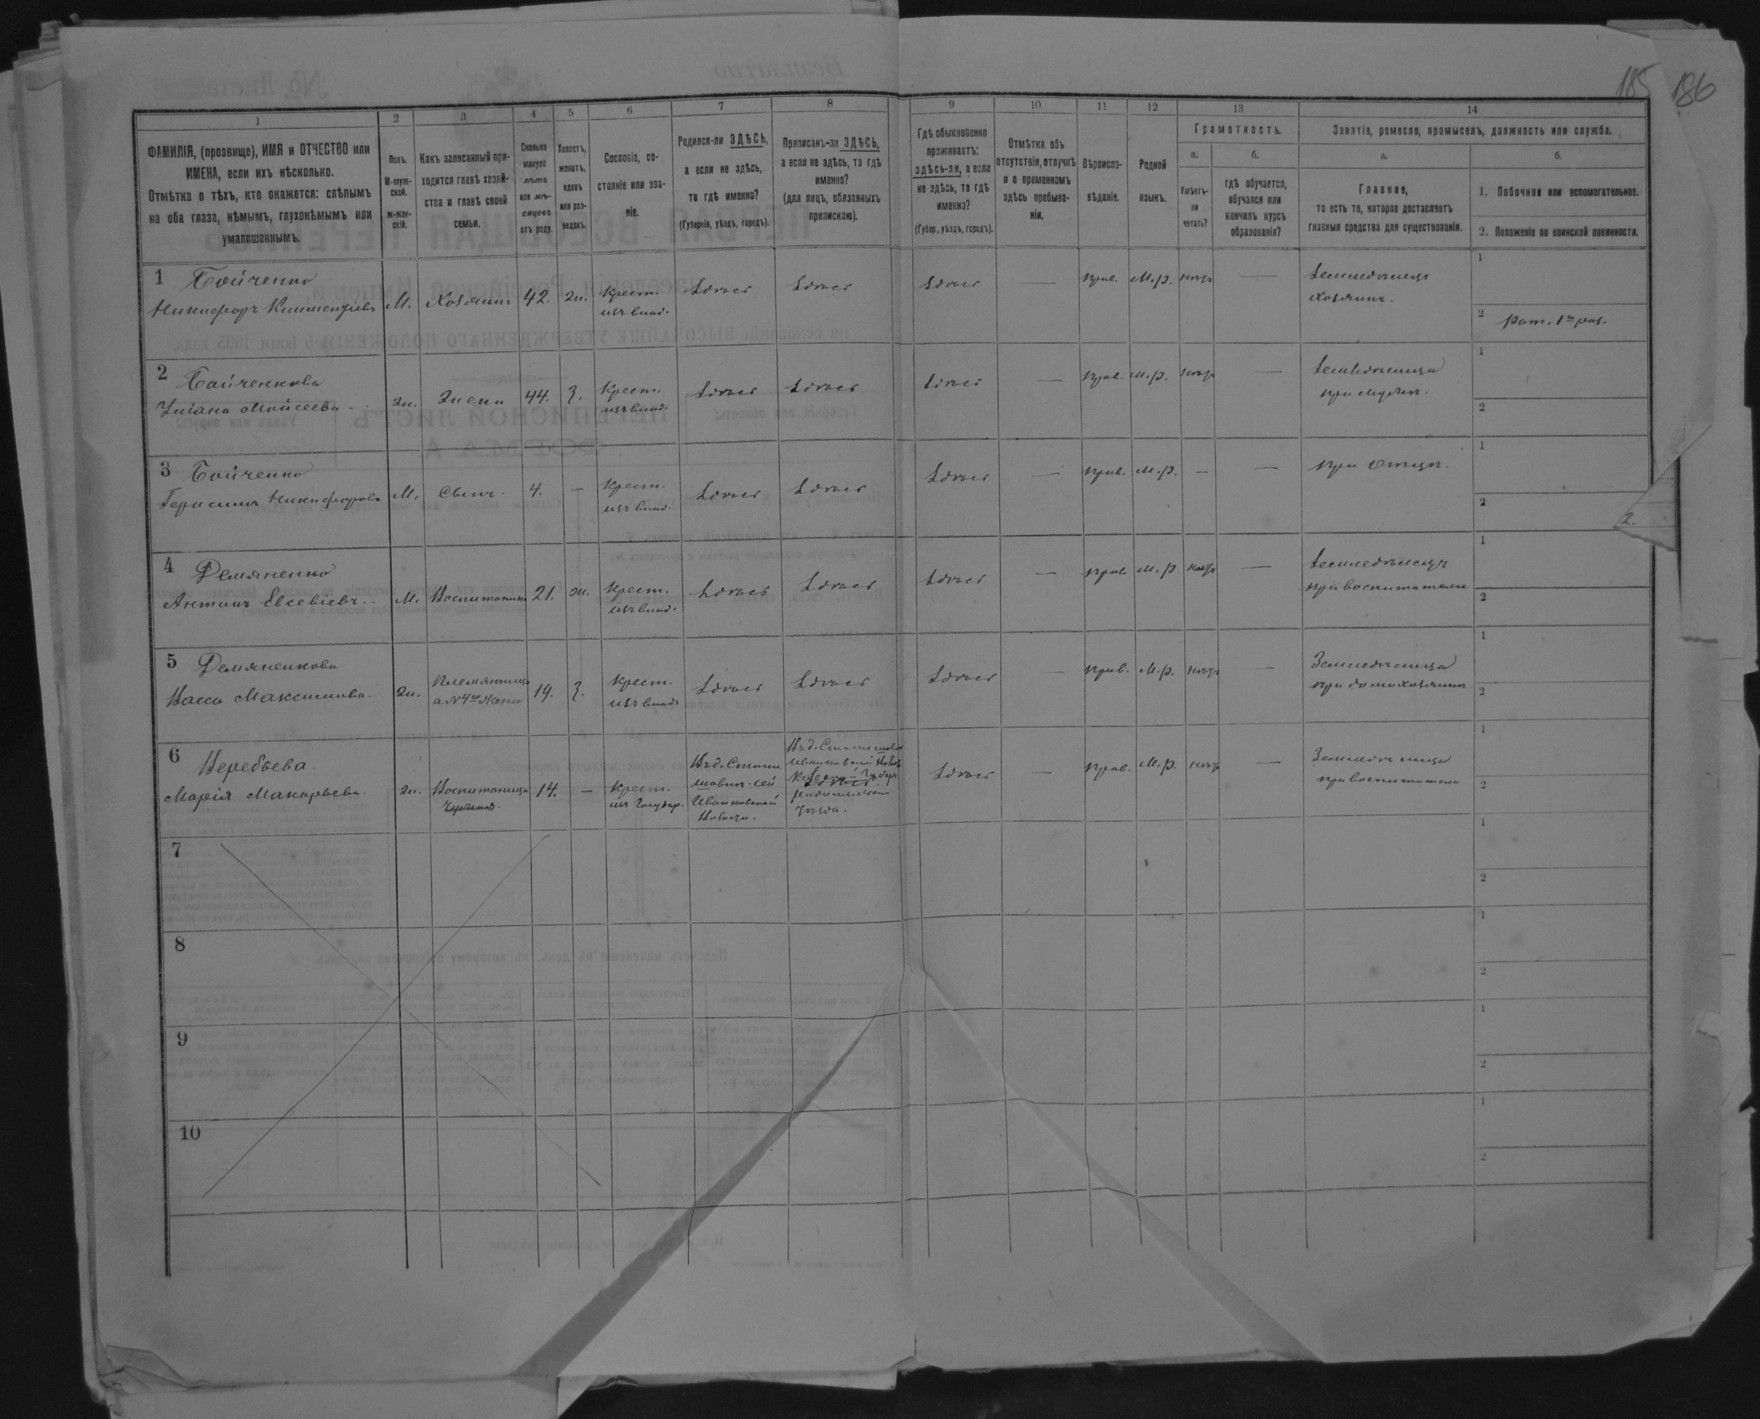 185 186
1 2 3 4 5 6 7 8 9 10 11 12 13 14
ФАМИЛІЯ, (прозвище), ИМЯ и ОТЧЕСТВО или
ИМЕНА, если ихъ нѣсколько.
Отмѣтка о тѣхъ, кто окажется: слѣпымъ
на оба глаза, нѣмымъ, глухонѣмымъ или
умалишеннымъ.
Полъ.
М-муж-
ской.
ж-жен-
скій.
Какъ записанный при-
ходится главѣ хозяй-
ства и главѣ своей
семьи.
Сколько
минуло
лѣтъ
или мѣ-
сяцевъ
отъ роду.
Холостъ,
женатъ,
вдовъ
или раз-
веденъ.
Сословіе, со-
стояніе или зва-
ніе.
Родился-ли ЗДѢСЬ,
а если не здѣсь,
то гдѣ именно?
(Губернія, уѣздъ, городъ).
Приписанъ-ли ЗДѢСЬ,
а если не здѣсь, то гдѣ
именно?
(для лицъ, обязанныхъ
припискою).
Гдѣ обыкновенно
проживаетъ:
здѣсь-ли, а если
не здѣсь, то гдѣ
именно?
(Губер., уѣздъ, городъ).
Отмѣтка объ
отсутствіи, отлучкѣ
и о временномъ
здѣсь пребыва-
ніи.
Вѣроиспо-
вѣданіе.
Родной
языкъ.
Грамотность.
а.
Умѣетъ-
ли
читать?
б.
гдѣ обучается,
обучался или
кончилъ курсъ
образованія?
Занятіе, ремесло, промыселъ, должность или служба.
а.
Главное,
то есть то, которое доставляетъ
главныя средства для существованія.
б.
1. Побочное или вспомогательное.
2. Положеніе по воинской повинности.
1 Бойченко М. Хозяинъ 42. ж. Крест. изъ влад. Здѣсь Здѣсь Здѣсь — прав. М.р. нѣтъ — Земледѣлецъ хозяинъ. 1
2 Рат. 1го раз.
2 Бойченкова
Уліана Мойсеева ж. Жена 44. З. Крест. изъ влад. Здѣсь Здѣсь Здѣсь — прав. М.р. нѣтъ — Земледѣлица при мужѣ. 1
2
3 Бойченко
Герасимъ Никифоровъ М. Сынъ. 4. — Крест. изъ влад. Здѣсь Здѣсь Здѣсь — прав. М.р. — — при отцѣ. 1
2
4 Демяненко
Антонъ Евсевіевъ М. 21. ж. Крест. изъ влад. Здѣсь Здѣсь Здѣсь — прав. М.р. нѣтъ — Земледѣлецъ при воспитателѣ 1
2
5 Демяненкова
Васса Максимова ж. Племянница а №4го Жена 19. З. Крест. изъ влад. Здѣсь Здѣсь Здѣсь — прав. М.р. нѣтъ — Земледѣлица при домохозяинѣ 1
2
6 Веребьева
Марія Макарьева ж. Воспитаница 14. — Крест. изъ Государ. Здѣсь — прав. М.р. нѣтъ — Земледѣлица при воспитателѣ 1
Ивановской
Волости.
уѣзда.
2
7 1
2
8 1
2
9 1
2
10 1
2
2.